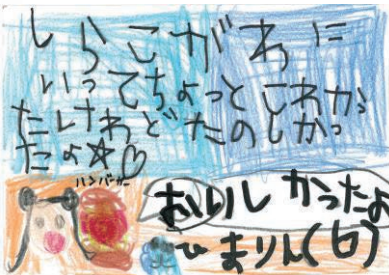 しらこがわに
いってちょっとこわかっ
たけれどたのしかっ
たよ☆♡
ハンバーガー
おいしかったよ
まりん(6)